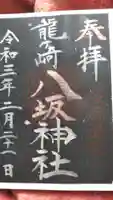 奉拝
龍ヶ崎
八坂神社
令和三年二月二十一日